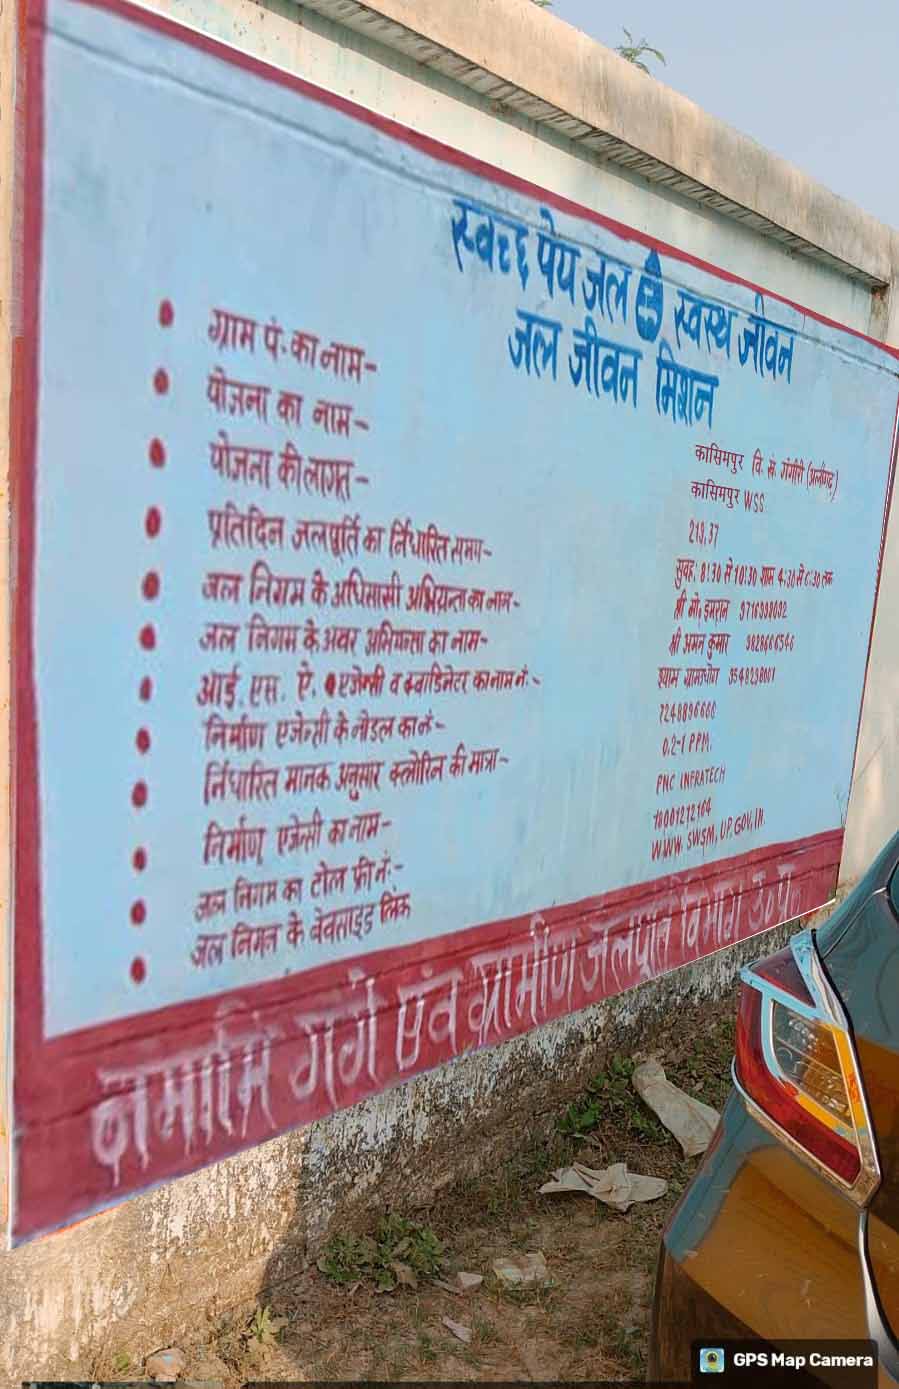 स्वच्छ पेय जल स्वस्थ जीवन
जल जीवन मिशन
ग्राम पं. का नाम- कासिमपुर वि. खं. गंगीरी (अलीगढ़)
योजना का नाम- कासिमपुर WSS
योजना की लागत- 213.37
प्रतिदिन जलपूर्ति का र्निधारित समय- सुबह. 8:30 से 10:30 शाम 4:30 से
जल निगम के अधिसासी अभियन्ता का नाम- श्री मो. इमरान
जल निगम के अवर अभियन्ता का नाम- श्री अमन कुमार
आई. एस. ऐ. एजेन्सी व क्वाडिनेटर का नाम नं.- श्याम ग्रामोद्योग
निर्माण एजेन्सी के नोडल का नं-
र्निधारित मानक अनुसार क्लोरिन की मात्रा- 0.2-1 PPM.
निर्माण एजेन्सी का नाम- PNC INFRATECH
जल निगम का टोल फ्री नं:-
जल निगम के बेवसाइड लिंक WWW. SWSM. UP. GOV. IN
नमामि गंगे एंव ग्रामीण जलपूर्ति विभाग उ०प्र०
GPS Map Camera